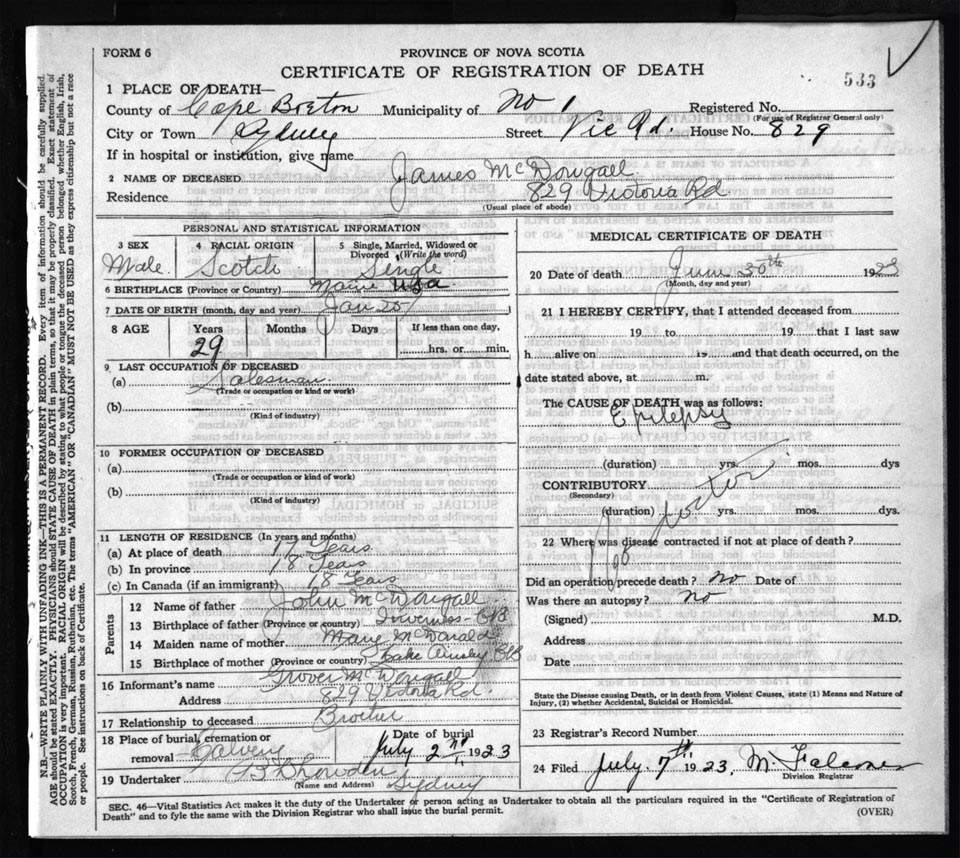 FORM 6
PROVINCE OF NOVA SCOTIA
CERTIFICATE OF REGISTRATION OF DEATH
533
1 PLACE OF DEATH—
County of Cape Breton Municipality of No 1 Registered No.
(For use of Registrar General only)
City or Town Sydney Street Vic Rd. House No. 829
If in hospital or institution, give name
2 NAME OF DECEASED James McDougall
Residence 829 Victoria Rd
(Usual place of abode)
PERSONAL AND STATISTICAL INFORMATION
3 SEX Male
4 RACIAL ORIGIN Scotch
5 Single, Married, Widowed or Divorced (Write the word) Single
6 BIRTHPLACE (Province or Country) Maine USA
7 DATE OF BIRTH (month, day and year) Jan 25
8 AGE Years Months Days If less than one day,
29 hrs. or min.
9 LAST OCCUPATION OF DECEASED
(a) Salesman
(Trade or occupation or kind or work)
(b)
(Kind of industry)
10 FORMER OCCUPATION OF DECEASED
(a)
(Trade or occupation or kind of work)
(b)
(Kind of industry)
11 LENGTH OF RESIDENCE (In years and months)
(a) At place of death Years
(b) In province 18 Years
(c) In Canada (if an immigrant) 18 Years
Parents
12 Name of father John McDougall
13 Birthplace of father (Province or country) Inverness - CB
14 Maiden name of mother Mary McDonald
15 Birthplace of mother (Province or country) Lake Ainsley CB
16 Informant's name Grover McDougall
Address 829 Victoria Rd.
17 Relationship to deceased Brother
18 Place of burial, cremation or removal Calvery
Date of burial July 2nd 1923
19 Undertaker Sydney
(Name and Address)
MEDICAL CERTIFICATE OF DEATH
20 Date of death June 30th 1923
(Month, day and year)
21 I HEREBY CERTIFY, that I attended deceased from
19 to 19 that I last saw
h alive on 19 and that death occurred, on the
date stated above, at m.
The CAUSE OF DEATH was as follows:
Epilepsy
(duration) yrs. mos. dys
CONTRIBUTORY
(Secondary)
(duration) yrs. mos. dys.
No Doctor
22 Where was disease contracted if not at place of death?
Did an operation precede death? No Date of
Was there an autopsy? No
(Signed) M.D.
Address
Date
State the Disease causing Death, or in death from Violent Causes, state (1) Means and Nature of
Injury, (2) whether Accidental, Suicidal or Homicidal.
23 Registrar's Record Number
24 Filed July 7th 1923, M. Falconer
Division Registrar
SEC. 46—Vital Statistics Act makes it the duty of the Undertaker or person acting as Undertaker to obtain all the particulars required in the "Certificate of Registration of
Death" and to fyle the same with the Division Registrar who shall issue the burial permit.
(OVER)
N.B.—WRITE PLAINLY WITH UNFADING INK—THIS IS A PERMANENT RECORD. Every item of information should be carefully supplied.
AGE should be stated EXACTLY. PHYSICIANS should STATE CAUSE OF DEATH in plain terms, so that it may be properly classified. Exact statement of
OCCUPATION is very important. RACIAL ORIGIN will be described by stating to what people or tongue the deceased person belonged whether English, Irish,
Scotch, French, German, Russian, Ruthenian, etc. The terms "AMERICAN" OR "CANADIAN" MUST NOT BE USED as they express citizenship but not a race
or people. See instructions on back of Certificate.